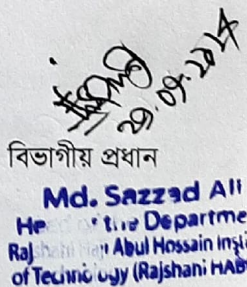 29.09.2014
বিভাগীয় প্রধান
Md. Sazzad Ali
He of the Departme
Rajshahi Haji Abul Hossain Insti
of Technology (Rajshani HAB